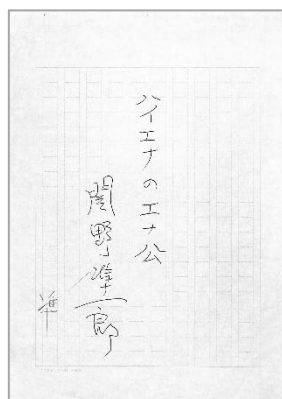 ハイエナのエナ公
関野準一郎
準